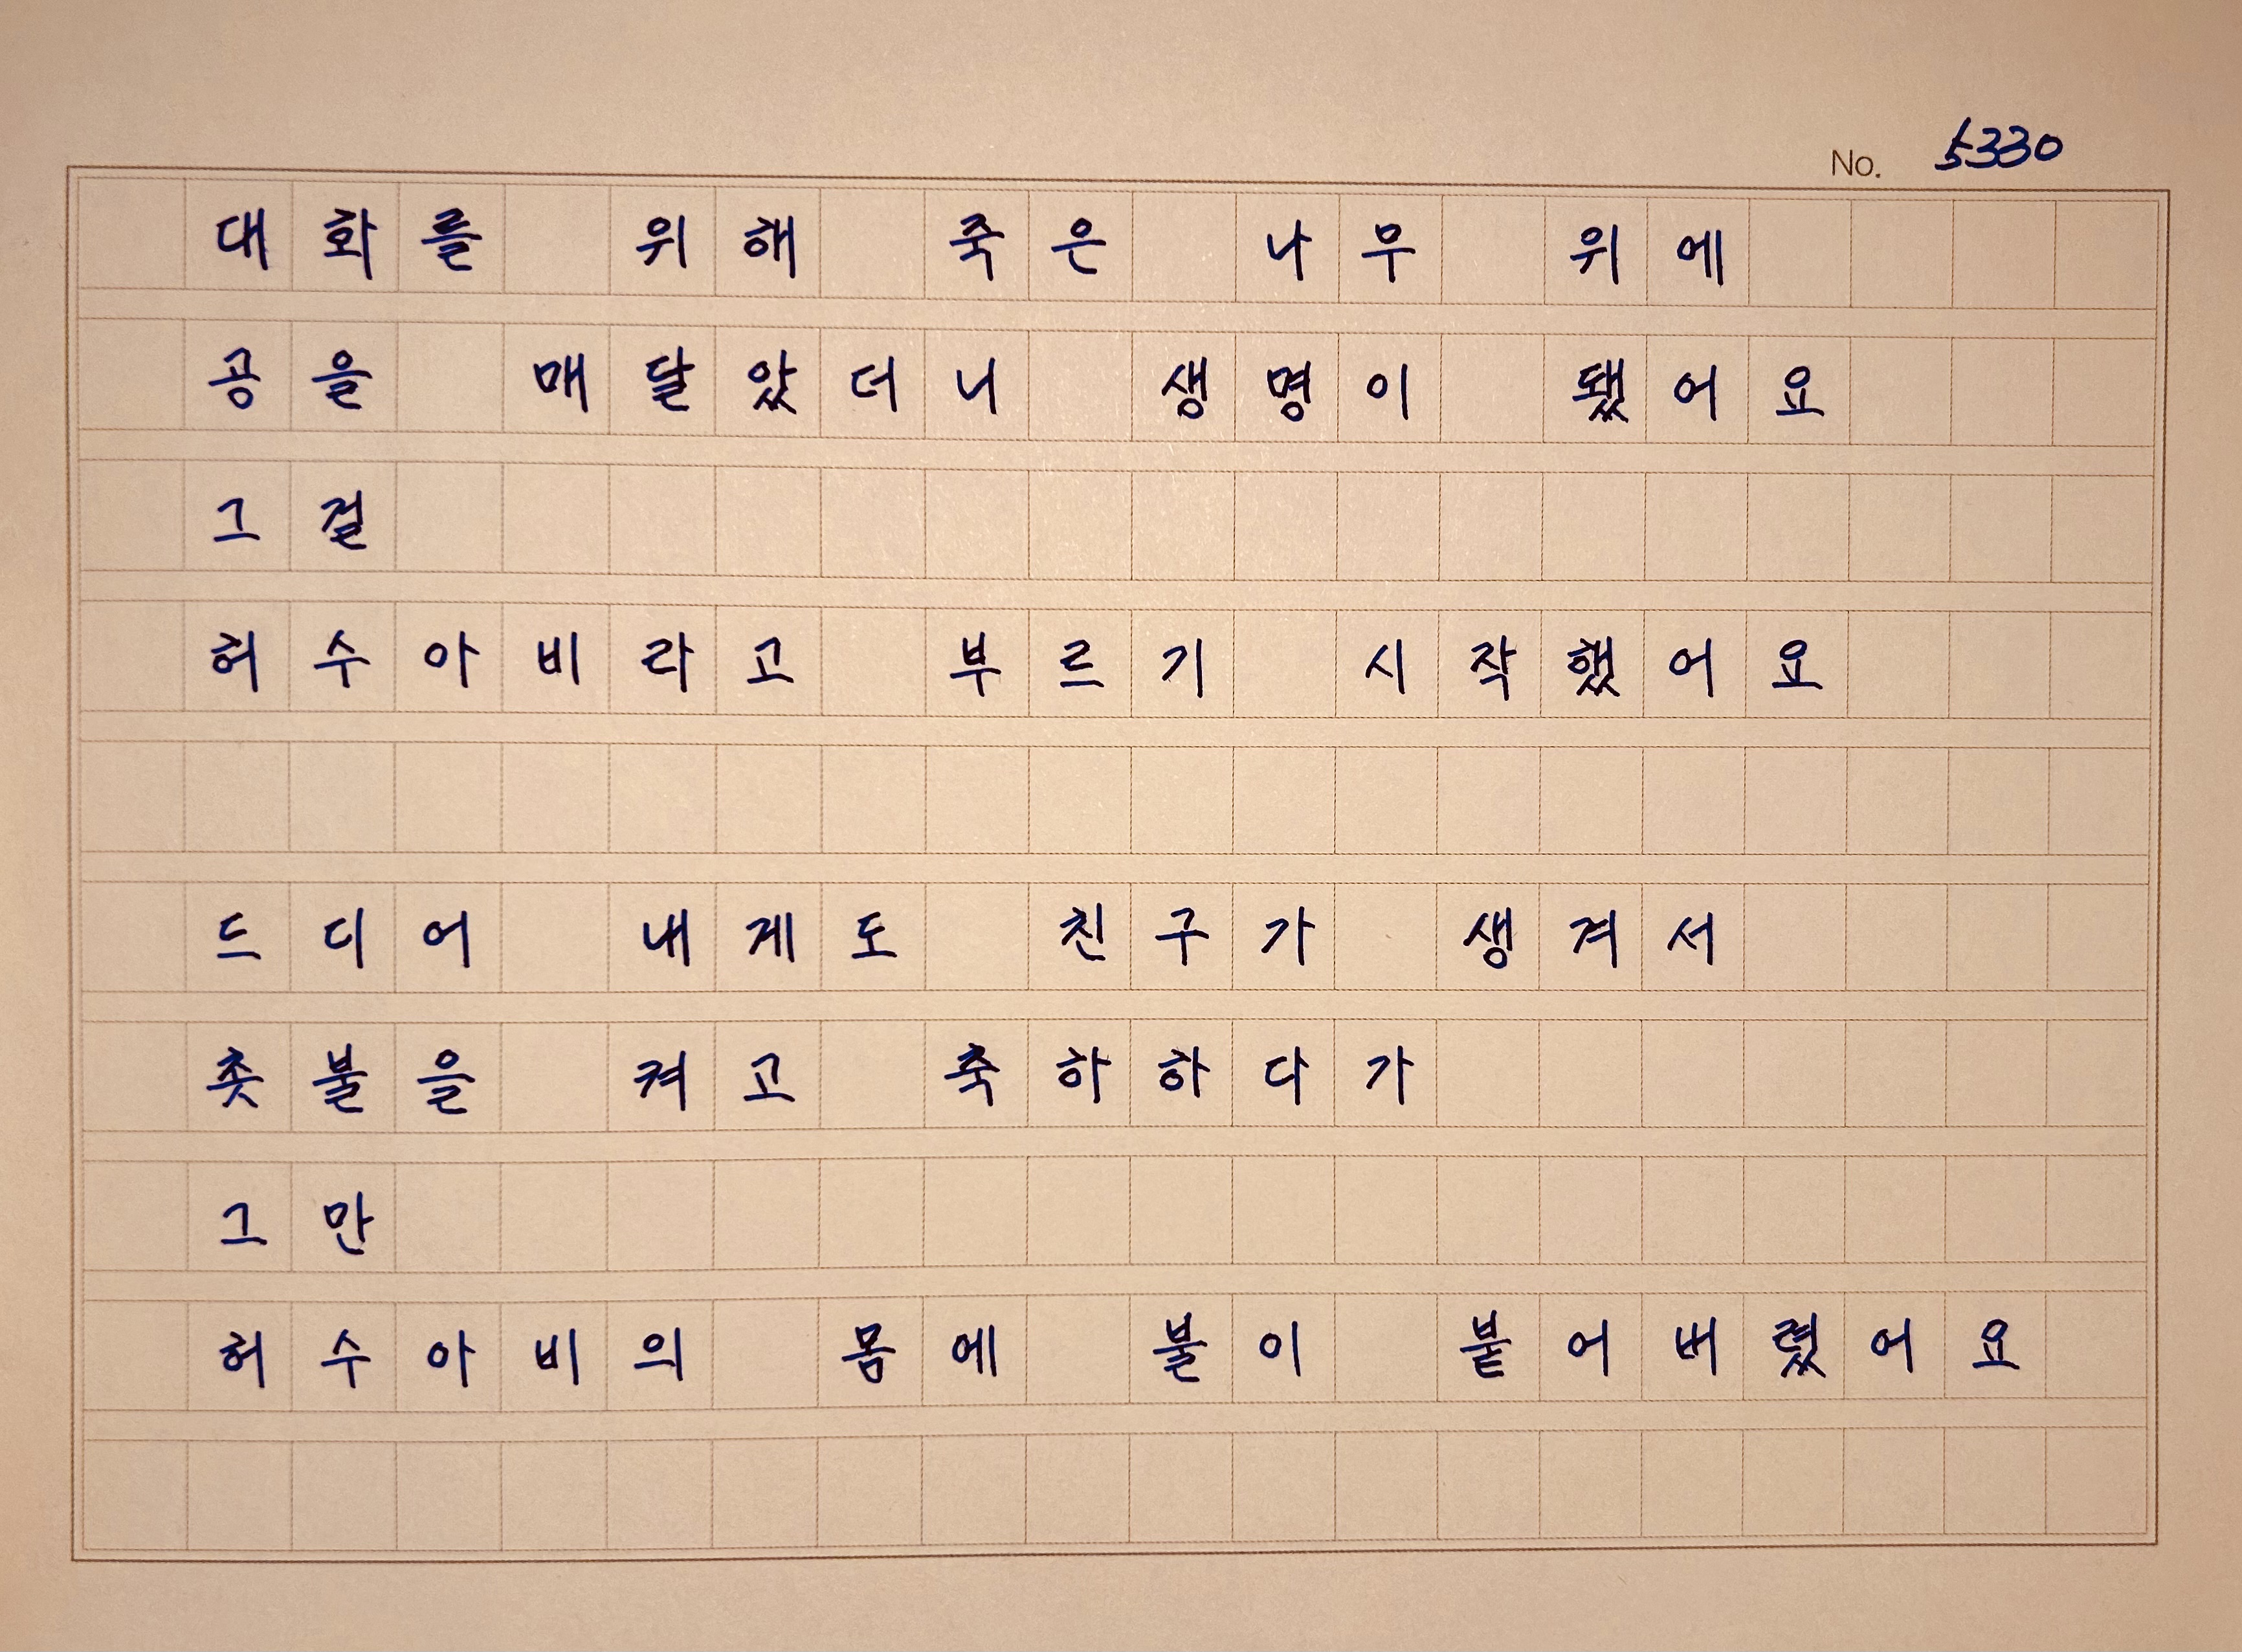 No. 5330
대화를 위해 죽은 나무 위에
공을 매달았더니 생명이 됐어요
그걸
허수아비라고 부르기 시작했어요
드디어 내게도 친구가 생겨서
촛불을 켜고 축하하다가
그만
허수아비의 몸에 불이 붙어버렸어요